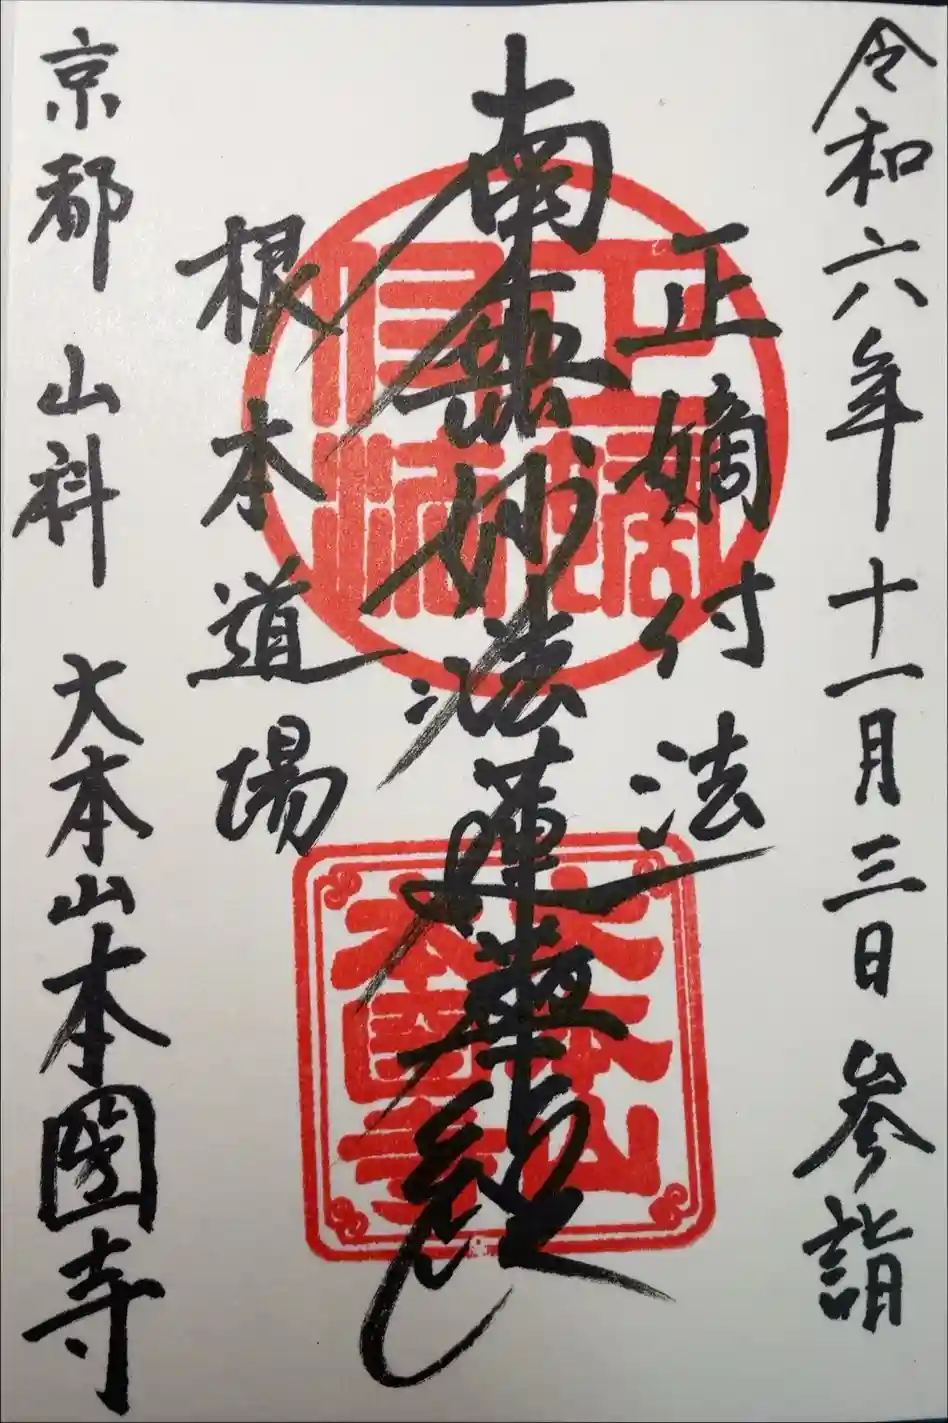 令和六年十一月三日 参詣
正嫡付法
南無妙法蓮華経
根本道場
京都 山科 大本山本圀寺
大本山
本圀寺